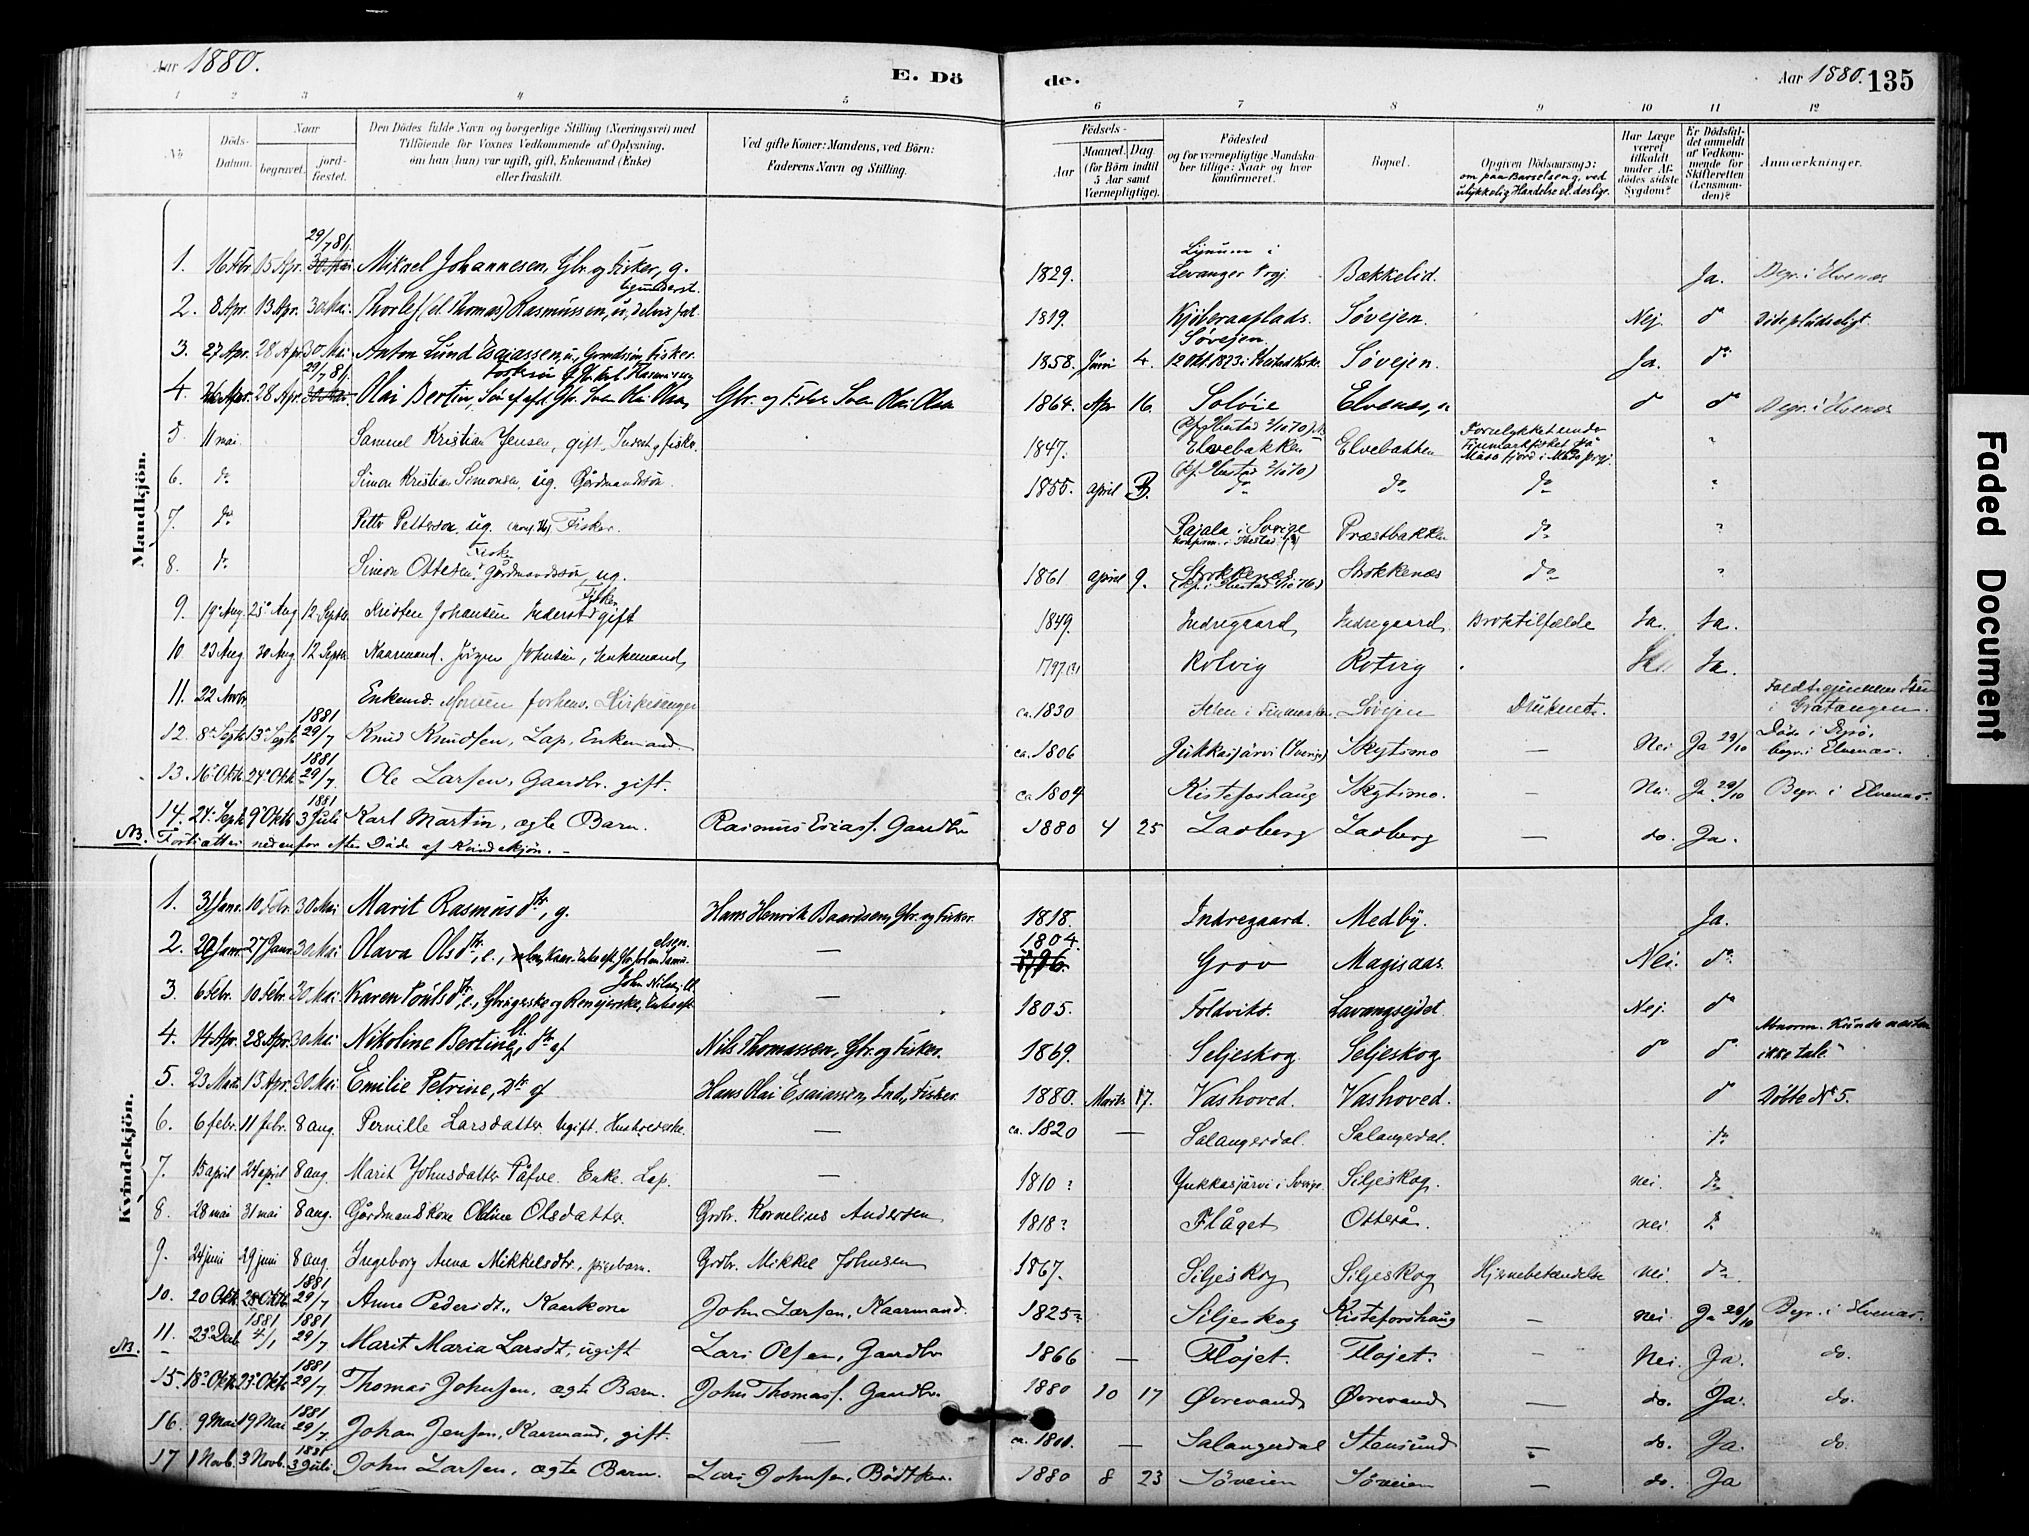 Aar 1880.
E. Dö
de.
Aar 1880. 135
1 2 3 4 5 6 7 8 9 10 11 12
No
Döds-Datum.
Naar
begravet.
jord-fæstet.
Den Dödes fulde Navn og borgerlige Stilling (Næringsvei) med
Tilföiende for Voxnes Vedkommende af Oplysning,
om han (hun) var ugift, gift, Enkemand (Enke)
eller fraskilt.
Ved gifte Koner: Mandens, ved Börn:
Faderens Navn og Stilling.
Födsels-
Aar
Maaned. Dag
(for Börn indtil
5 Aar samt
Værnepligtige).
Födested
og for værnepligtige Mandska-
ber tillige: Naar og hvor
konfirmeret.
Bopæl.
Opgiven Dödsaarsag;
om paa Barselseng, ved
ulykkelig Hændelse el. deslige.
Har Læge
været
tilkaldt
under Af-
dödes sidste
Sygdom?
Er Dödsfal-
det anmeldt
af Vedkom-
mende for
Skifteretten
(Lensman-
den)?
Anmærkninger.
Mandkjön.
1. 16 Febr 15 Apr. 29/7 81. 30 Mai Mikael Johannesen, Gbr. og Fisker, g. 1829. Levanger Prgj. Bækkelid. Ja. Begr. i Elvenæs
2. 8 Apr. 13 Apr. 30 Mai. Thorlef (el. Thomas) Rasmussen, u, 1819. Søvejen. Nej. do Døde pludseligt.
3. 27 Apr. 28 Apr 30 Mai Anton Lund Esaiassen, u, Gmdssøn, Fisker. 1858. Juni 4. Søvejen. Søvejen. Ja. do
4. 26 Apr. 28 Apr 29/7 81. 30 Mai. Olai Bertin, Søn af afd. Gbr. Sven Olai Olsen Gbr. og Fisker Sven Olai Olsen 1864. Apr 16. Solvie Elvenæs, do do Begr. i Elvenæs
5. 11 mai Samuel Kristian Jensen, gift. Inderst og fisker. 1847. Elvebakken Elvebakken Forulykket under Finmarkfisket på Måsø fjord i Måsø prgj.
6. do Simon Kristian Simonsen, ug. Gårdmandssøn. 1855. april 3. do do do
7. do Petter Petterson, ug. Fisker. Pajala i Sverige Præstbakken do
8. do Simeon Ottesen, Fisker Gårdmandssøn, ug. 1861 april 9. Strokkenæs Strokkenæs do
9. 19 Aug. 25 Aug 12 Septbr. Kristen Johansen Inderst Fisker gift 1849. Indregaard Indregaard. Broktilfælde Ja. Ja.
10 23 Aug. 30 Aug 12 Septbr. Kaarmand. Jörgen Johnsen, Enkemand, 1797(?) Rotvig Rotvig Ja. Ja.
11. 22 Novbr. Enkemd. Monsen forhens. Kirkesanger ca. 1830 Alten i Finmarken Søvejen Druknet.
i Gratangen.
12. 8 Septb. 13 Septb. 1881 29/7 Knud Knudsen, Lap, Enkemand ca. 1806 Jukkasjärvi (Sverige) Skytsmo — Nei Ja 29/10 Døde i Dyrö, begr. i Elvenæs.
13. 16 Oktb. 24 Oktb. 1881 29/7 Ole Larsen, Gaardbr. gift. ca 1804 Kistefoshaug Skytsmo. — Nei. Ja 29/10 Begr. i Elvenæs.
14. 24 Septb. 9 Oktb. 1881 3 Juli Karl Martin, ægte Barn. Rasmus Esaiass. Gaardbr 1880 4 25 Ladberg Ladberg — do. Ja.
NB. Fortsættes nedenfor efter Døde af Kvindekjön. –
Kvindekjön.
1. 31 Janr. 10 Febr. 30 Mai Marit Rasmusdtr., g. Hans Henrik Baardsen, Gbr. og Fisker. 1818. Indregaard. Medby. Ja.
2. 20 Janr. 27 Janr. 30 Mai. Olava Olsdtr., e., 1804. Grov Magisaas. Nei. do
3. 6 Febr. 10 Febr. 30 Mai. Karen — 1805. Foldvik. Lavangsejdet. Nej. do
4. 14 Apr. 28 Apr. 30 Mai Nikoline Bertine, dtr af Nils Thomassen, Gbr. og Fisker. 1869. Seljeskog. Seljeskog do do Abnorm. Kunde næsten ikke tale.
5. 23 Mars 15 Apr. 30 Mai Emilie Petrine, Dtr af Hans Olai Esaiassen, Ind., Fisker. 1880. Marts 17. Vashoved. Vashoved. do Döbte No 5.
6. 6 febr. 11 febr. 8 aug. Pernille Larsdatter. Ugift. — ca. 1820 — Salangerdal. Salangerdal. do
7. 15 april 24 april 8 aug. Marit Johnsdatter Påfve. Enke. Lap. — 1810 ? Jukkasjärvi i Sverige Siljeskog. nei. do
8. 28 mai 31 mai 8 aug. Gårdmandskone Oldine Olsdatter. Grdbr. Kornelius Andersen 1818 ? Flåget Otterå. nei do
9. 24 juni 29 juni 8 aug. Ingeborg Anna Mikkelsdtr, pigebarn. Grdbr. Mikkel Johnsen 1867. Siljeskog Siljeskog Hjernebetændelse nei. do.
10. 20 Oktb. 28 Oktb. 1881 29/7 Anne Pedersdt., Kaarkone John Larsen, Kaarmand. 1825 ? Siljeskog Kistefoshaug — nei Ja 29/10 Begr. i Elvenæs.
11. 23 Decb. 1881 4/1 1881 29/7 Marit Maria Larsdt, ugift Lars Olsen, Gaardbr 1866 — Flojet. Flojet. — Nei. Ja. do.
NB. 15. 18 Oktb. 23 Oktb. 1881 29/7 Thomas Johnsen, ægte Barn. John Thomass. Gaardbr. 1880 10 17 Øvrevand Øvrevand — do. Ja. do.
16. 9 Mai 19 Mai 1881 29/7. Johan Jensen, Kaarmand, gift. — ca. 1801. — Salangerdal Stensund — do. Ja. do.
17 1 Novb. 3 Novb. 1881 3 Juli John Larsen, ægte Barn. Lars Johnsen, Bödtker. 1880 8 23 Söveien Söveien — do. Ja
Faded Document